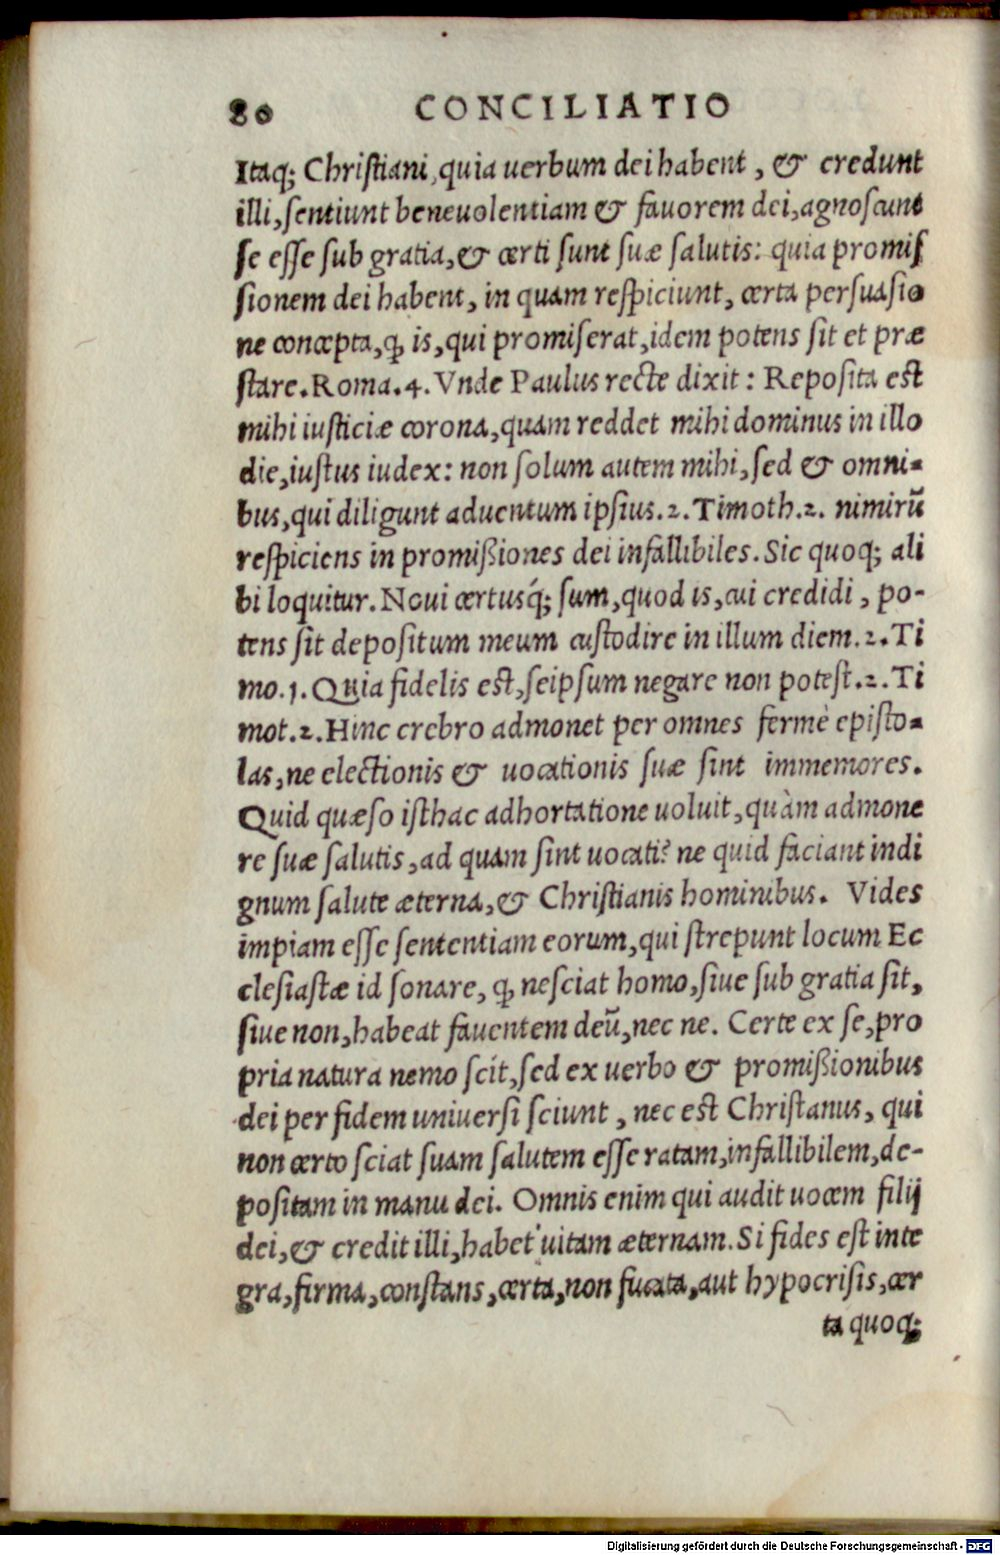 80 CONCILIATIO
Itaq; Christiani, quia uerbum dei habent, & credunt
illi, sentiunt beneuolentiam & fauorem dei, agnoscunt
se esse sub gratia, & certi sunt suæ salutis: quia promis
sionem dei habent, in quam respiciunt, certa persuasio
ne concepta, ꝙ is, qui promiserat, idem potens sit et præ
stare. Roma. 4. Vnde Paulus recte dixit: Reposita est
mihi iusticiæ corona, quam reddet mihi dominus in illo
die, iustus iudex: non solum autem mihi, sed & omni-
bus, qui diligunt aduentum ipsius. 2. Timoth. 2. nimirũ
respiciens in promißiones dei infallibiles. Sic quoq; ali
bi loquitur. Noui certusq́; sum, quod is, cui credidi, po-
tens sit depositum meum custodire in illum diem. 2. Ti
mo. 1. Quia fidelis est, seipsum negare non potest. 2. Ti
mot. 2. Hinc crebro admonet per omnes fermè episto-
las, ne electionis & uocationis suæ sint immemores.
Quid quæso isthac adhortatione uoluit, quàm admone
re suæ salutis, ad quam sint uocati? ne quid faciant indi
gnum salute æterna, & Christianis hominibus. Vides
impiam esse sententiam eorum, qui strepunt locum Ec
clesiastæ id sonare, ꝙ nesciat homo, siue sub gratia sit,
siue non, habeat fauentem deũ, nec ne. Certe ex se, pro
pria natura nemo scit, sed ex uerbo & promißionibus
dei per fidem uniuersi sciunt, nec est Christanus, qui
non certo sciat suam salutem esse ratam, infallibilem, de-
positam in manu dei. Omnis enim qui audit uocem filij
dei, & credit illi, habet uitam æternam. Si fides est inte
gra, firma, constans, certa, non fucata, aut hypocrisis, cer
ta quoq;
Digitalisierung gefördert durch die Deutsche Forschungsgemeinschaft - DFG